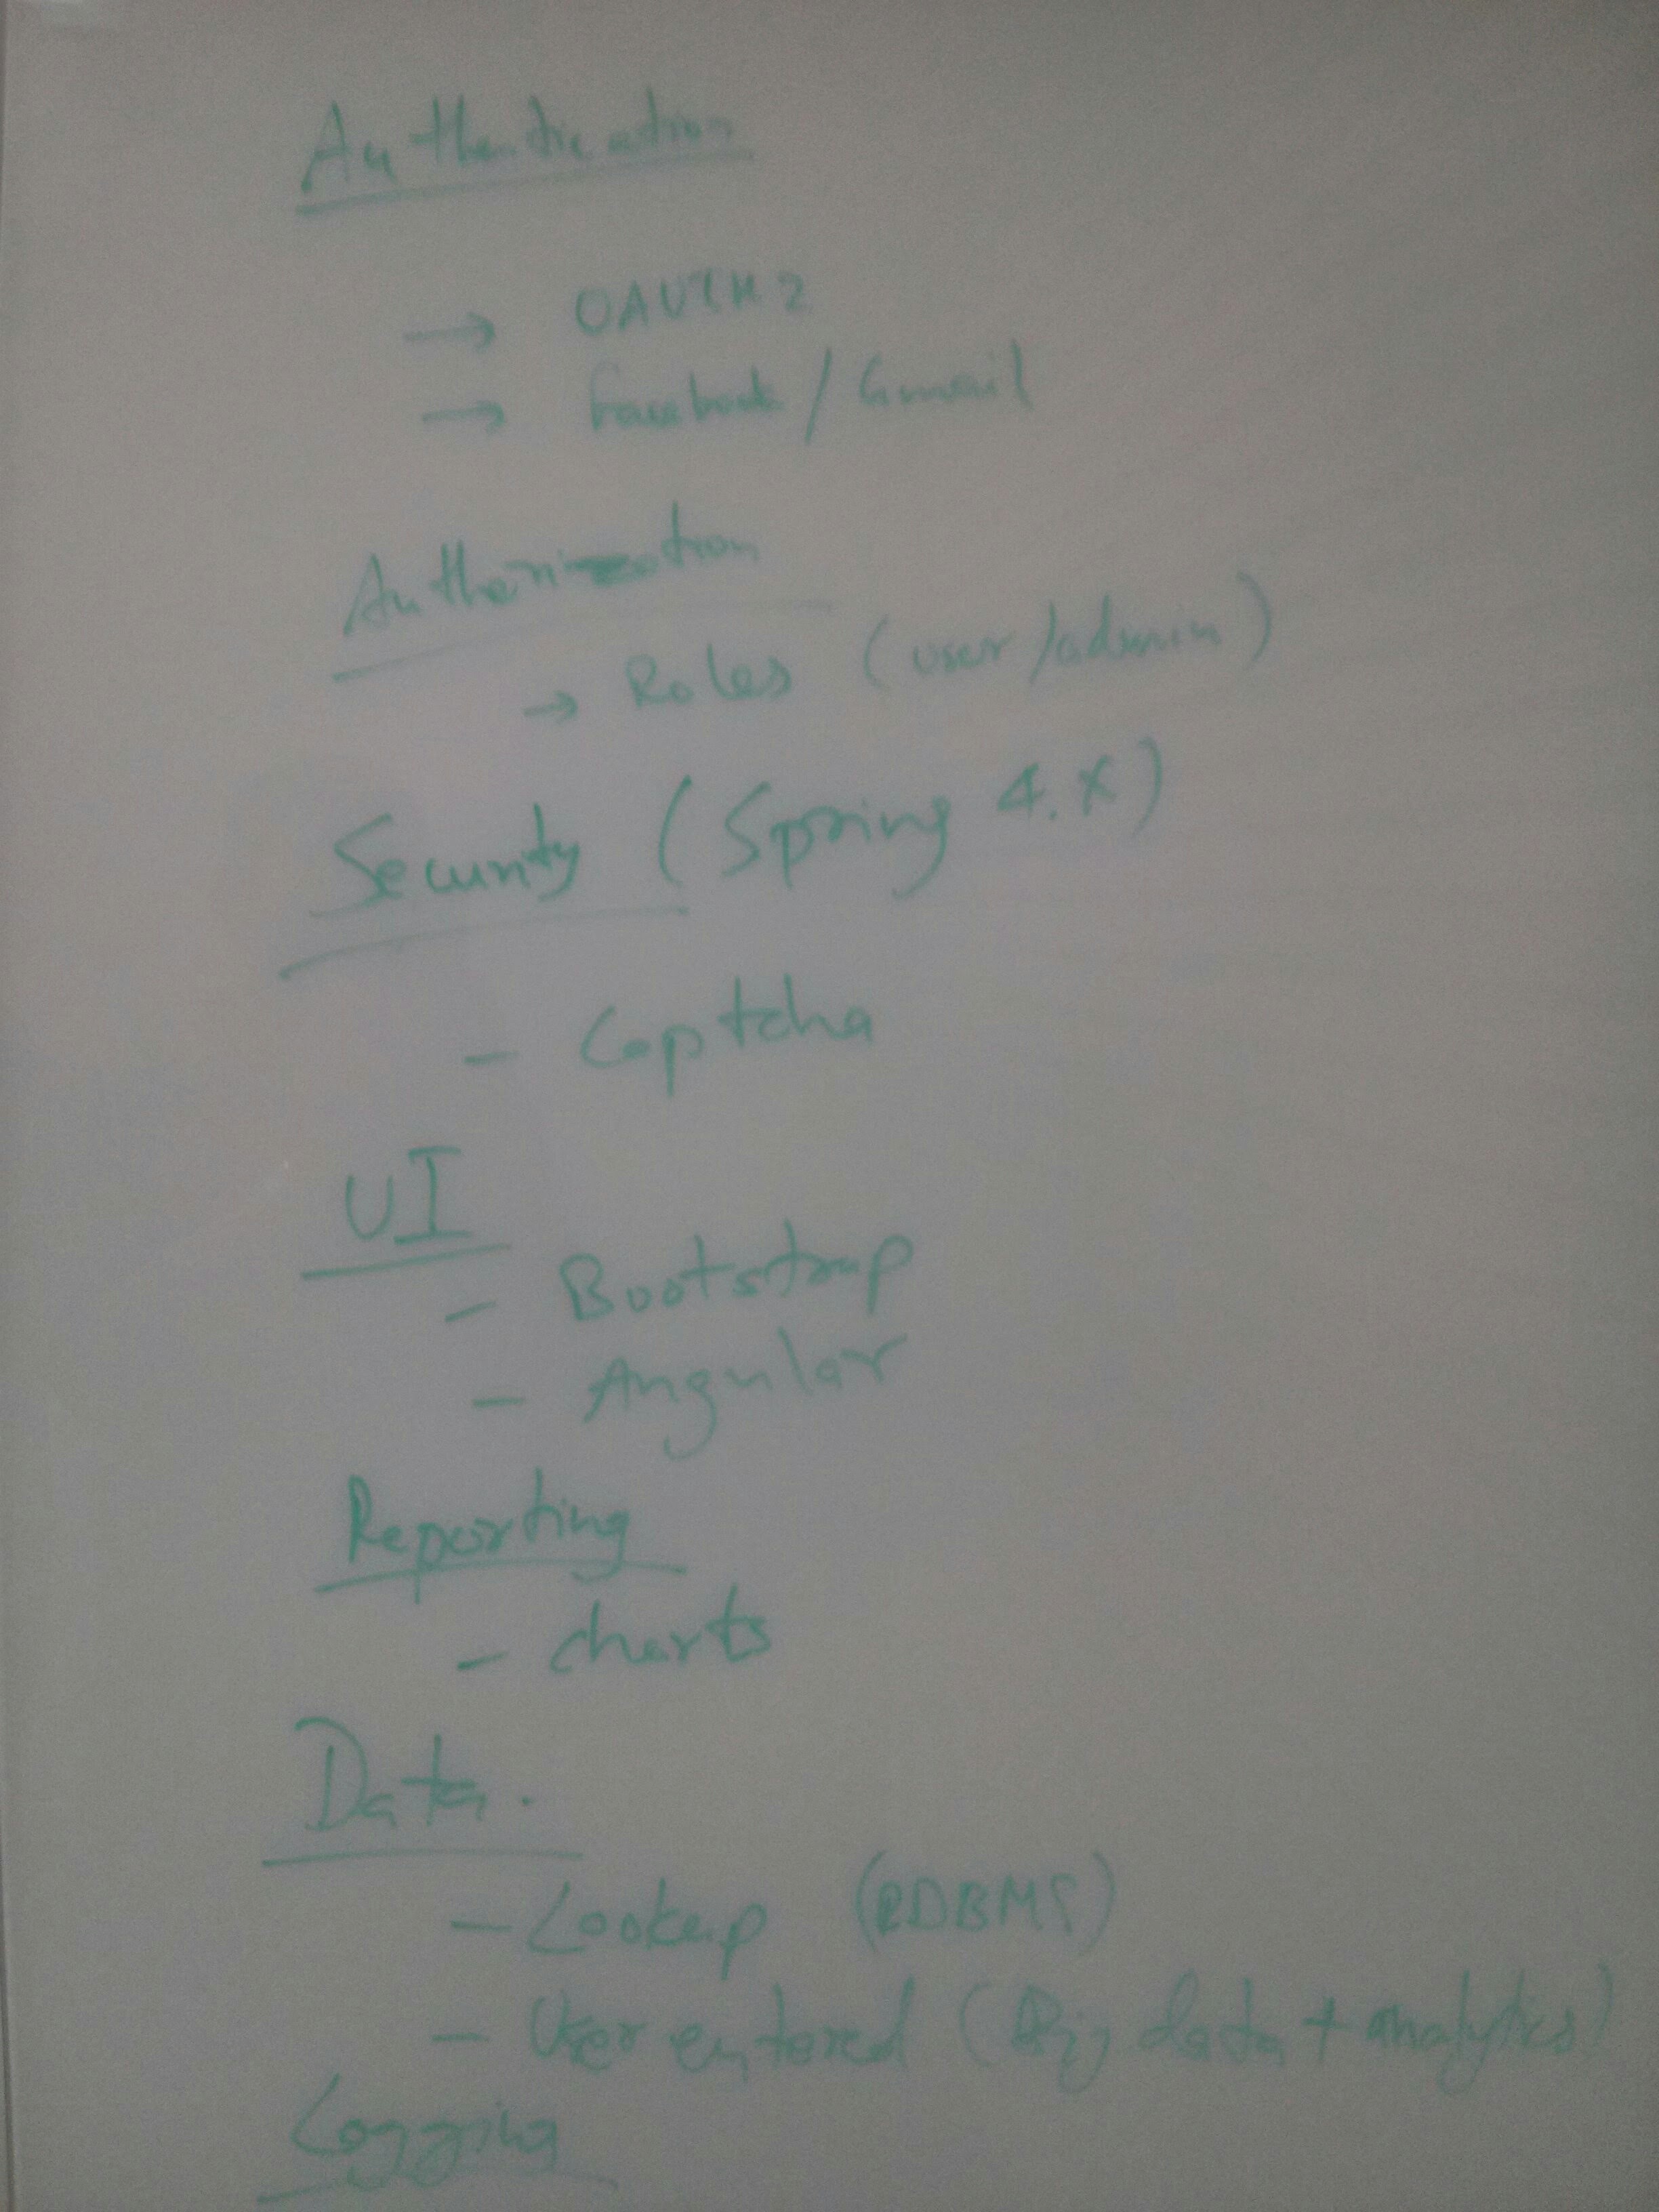 Authentication
→ OAUTH2
→ facebook / Gmail
Authorization
→ Roles (user/admin)
Security (Spring 4.X)
- Captcha
UI
- Bootstrap
- Angular
Reporting
- charts
Data.
- Lookup (RDBMS)
- User entered (Big data + analytics)
Logging